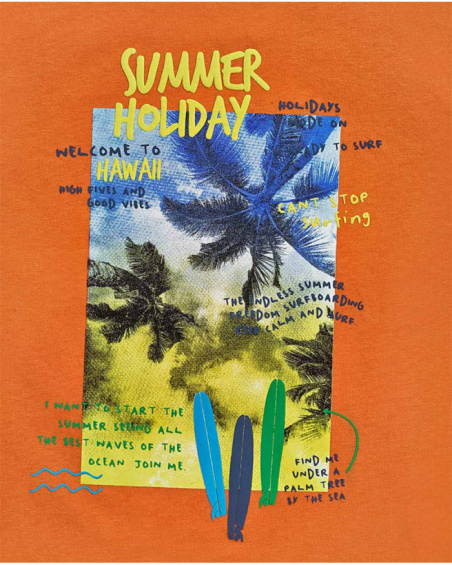 SUMMER
HOLIDAY
HOLIDAYS
MODE ON
READY TO SURF
WELCOME TO
HAWAII
HIGH FIVES AND
GOOD VIBES
CAN'T STOP
surfing
THE ENDLESS SUMMER
FREEDOM SURFBOARDING
CALM AND SURF
I WANT TO START THE
SUMMER SEEING ALL
THE BEST WAVES OF THE
OCEAN JOIN ME.
FIND ME
UNDER A
PALM TREE
BY THE SEA